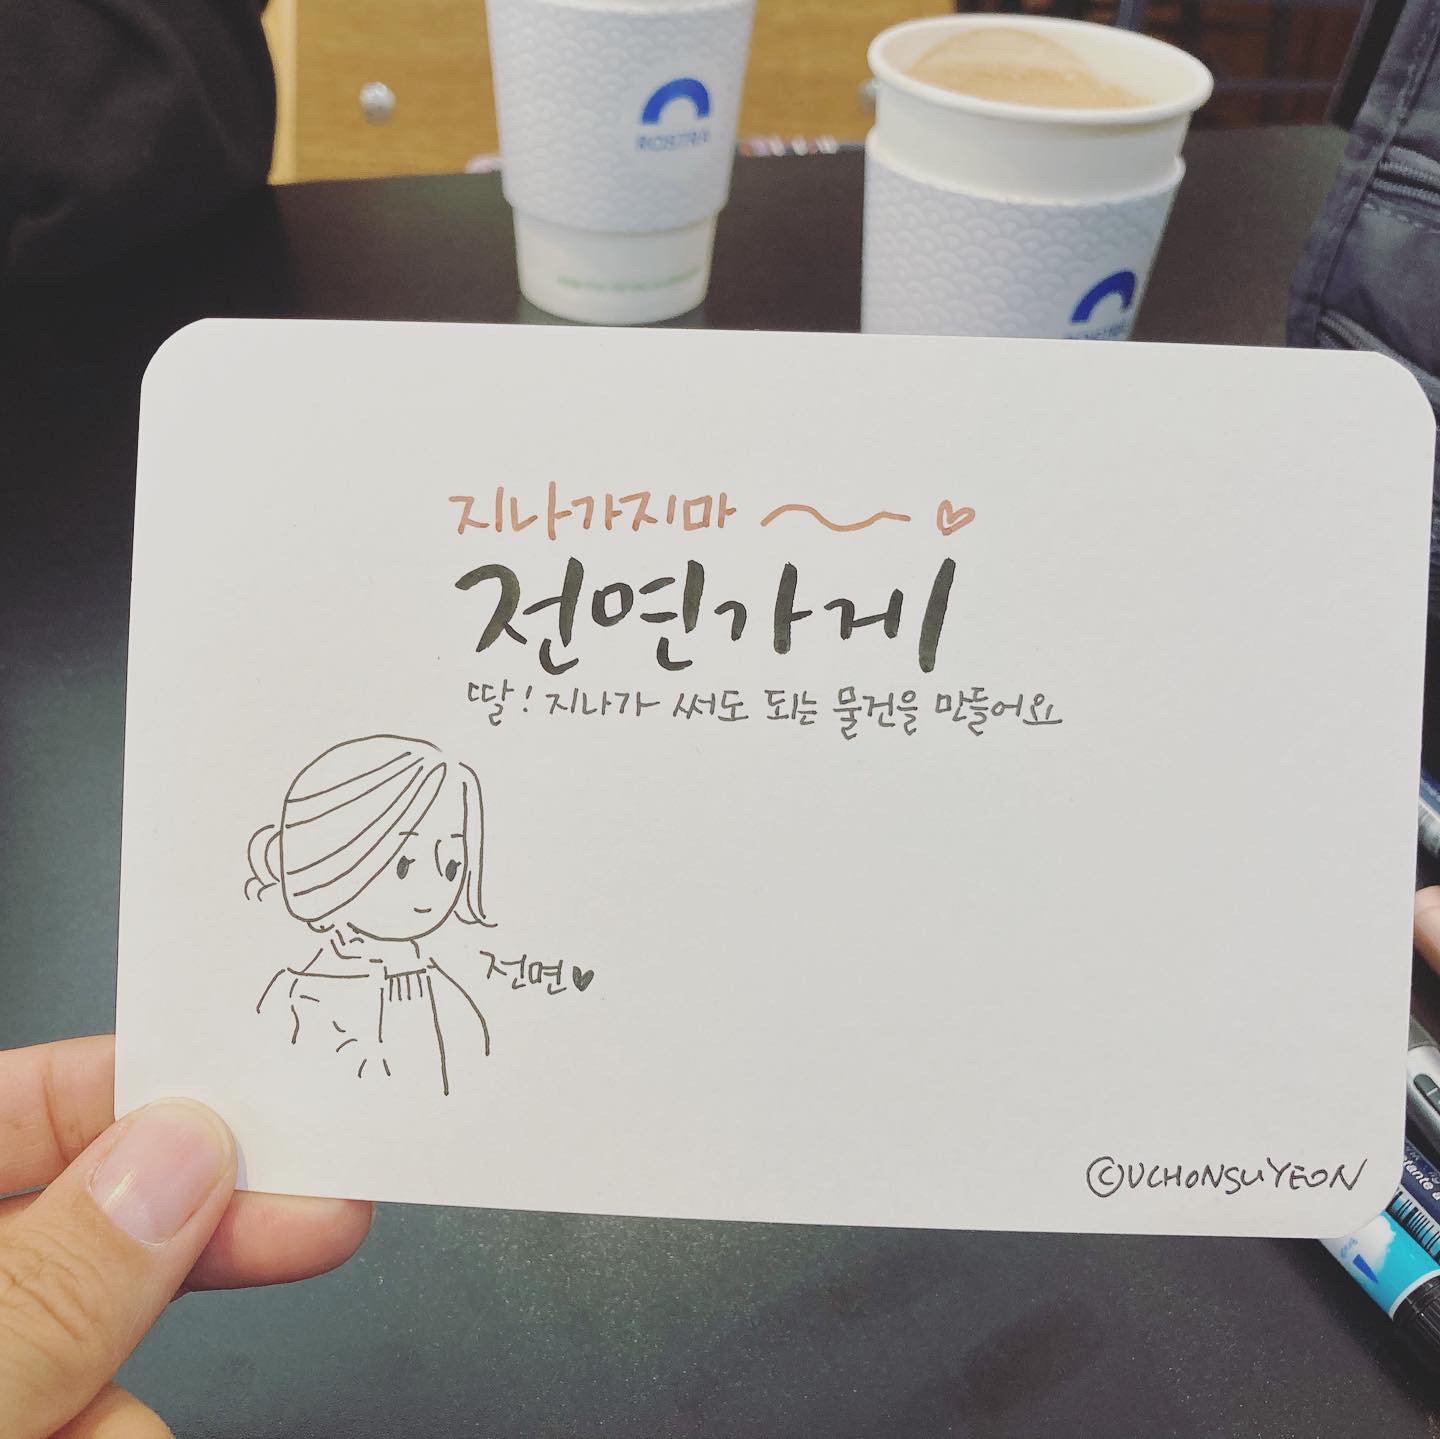 ROSTRA
지나가지마 ~ ♡
전연가게
딸! 지나가 써도 되는 물건을 만들어요
전면♥
©UCHONSUYEON